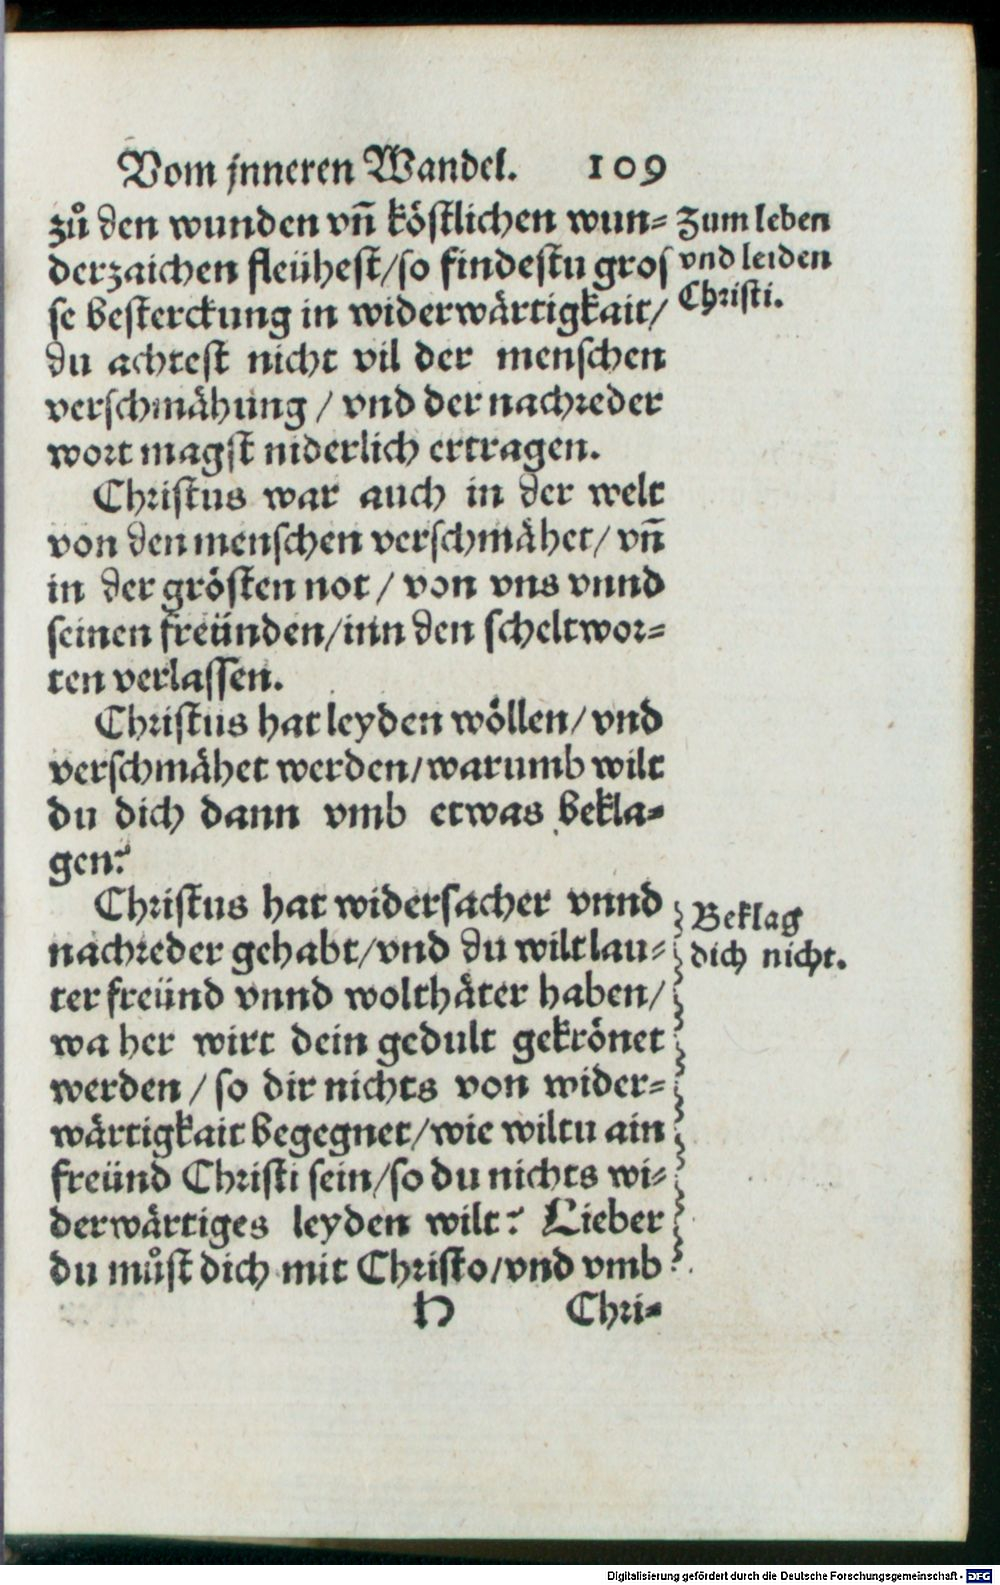 Vom jnneren Wandel. 109
zů den wunden vn̄ köstlichen wun=
derzaichen fleühest/so findestu gros
se besterckung in widerwärtigkait/
du achtest nicht vil der menschen
verschmähung / vnd der nachreder
wort magst niderlich ertragen.
Zum leben
vnd leiden
Christi.
Christus war auch in der welt
von den menschen verschmähet/ vn̄
in der grösten not / von vns vnnd
seinen freünden/inn den scheltwor=
ten verlassen.
Christus hat leyden wöllen/ vnd
verschmähet werden/warumb wilt
du dich dann vmb etwas bekla=
gen?
Christus hat widersacher vnnd
nachreder gehabt/vnd du wilt lau=
ter freünd vnnd wolthäter haben/
wa her wirt dein gedult gekrönet
werden / so dir nichts von wider=
wärtigkait begegnet/wie wiltu ain
freünd Christi sein/so du nichts wi=
derwärtiges leyden wilt? Lieber
du můst dich mit Christo/vnd vmb
Beklag
dich nicht.
H Chri=
Digitalisierung gefördert durch die Deutsche Forschungsgemeinschaft - DFG